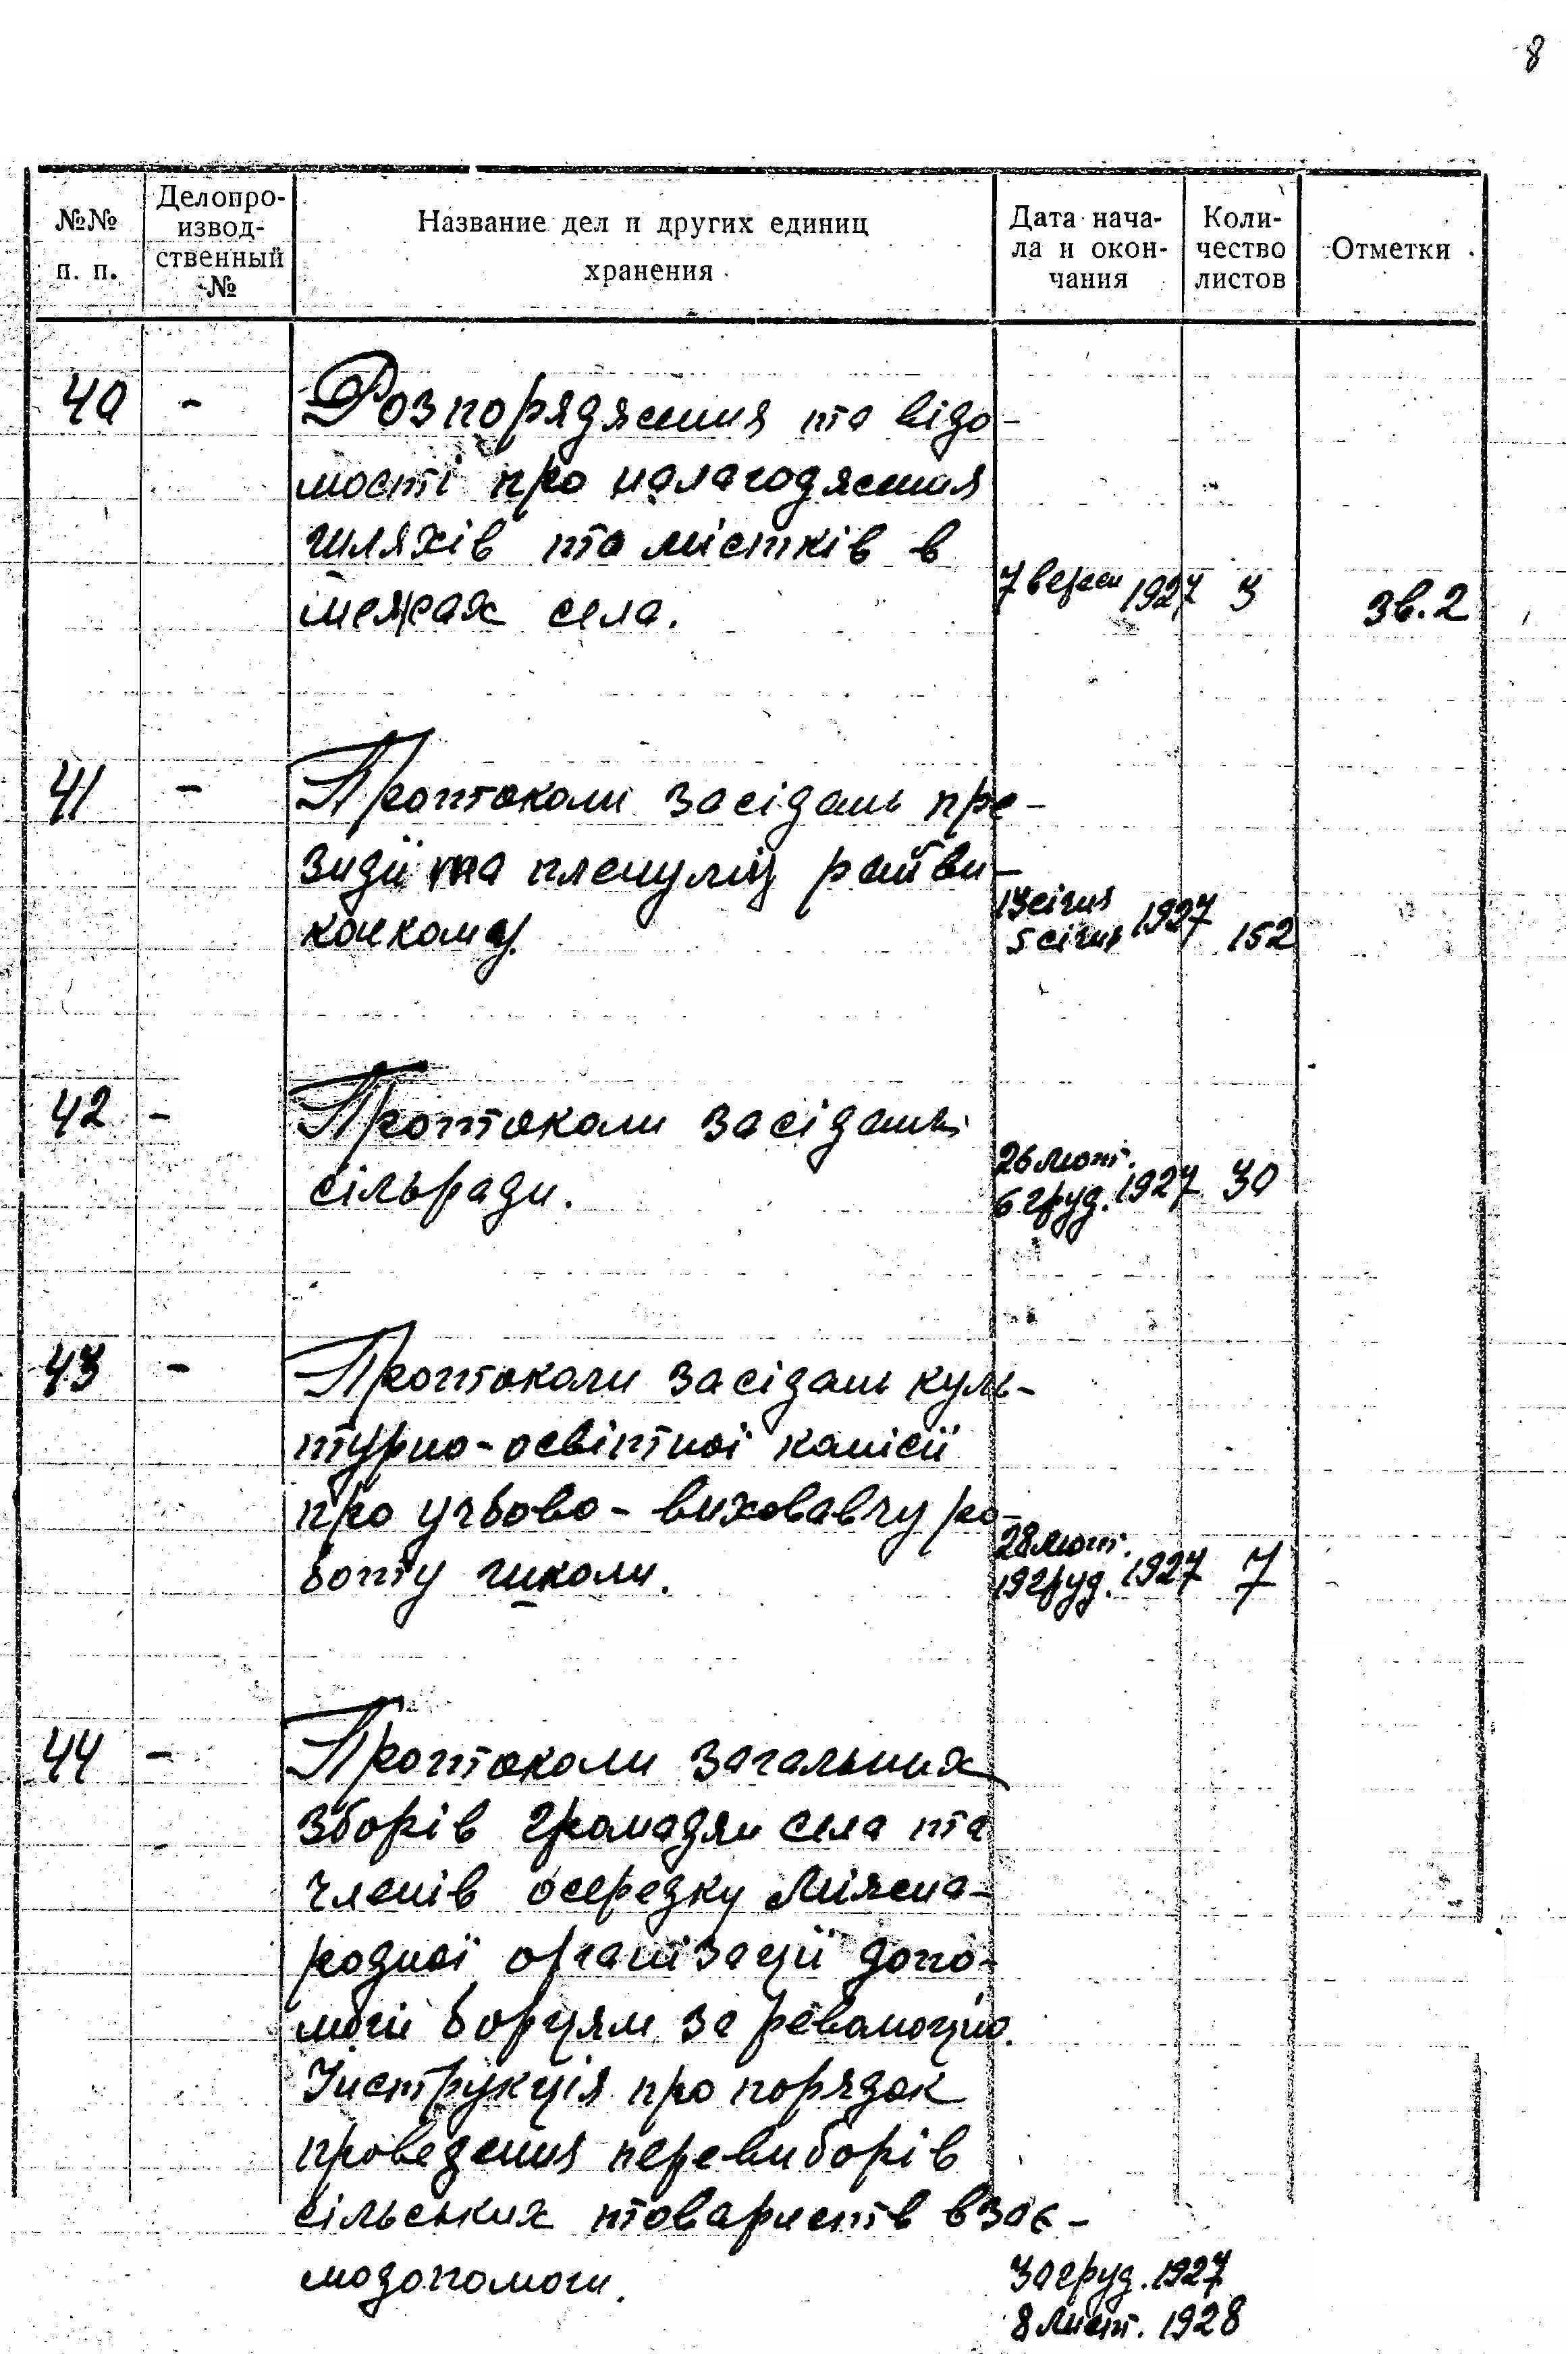 8
№№ п. п.
Делопро-
извод-
ственный
№
Название дел и других единиц
хранения
Дата нача-
ла и окон-
чания
Коли-
чество
листов
Отметки
40 - Розпорядження та відо-
мості про налагодження
шляхів та містків в
межах села. 7 верес 1927 3 зв.2
41 - Протоколи засідань пре-
зидії та пленуму райви-
конкому. 13 січня
5 січня 1927 152
42 - Протоколи засідань
сільради. 26 лют.
6 груд. 1927 30
43 - Протоколи засідань куль-
турно-освітної комісії
про учбово-виховавчу ро-
боту школи. 28 лют.
19 груд. 1927 7
44 - Протоколи загальних
зборів громадян села та
членів осередку Міжна-
родної організації допо-
моги борцям за революцію.
Інструкція про порядок
проведення перевиборів
сільських товариств взає-
модопомоги.
30 груд. 1927
8 лист. 1928